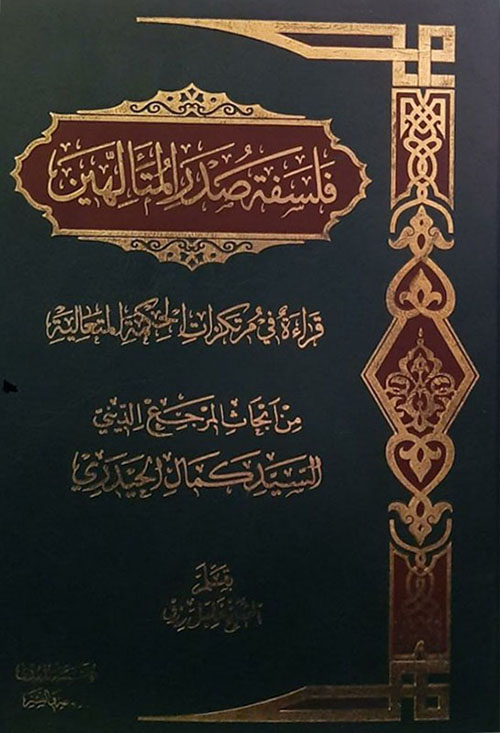 فلسفة صدر المتألهين
قراءة في مرتكزات الحكمة المتعالية
من أبحاث المرجع الديني
السيد كمال الحيدري
بقلم
الشيخ خليل رزق